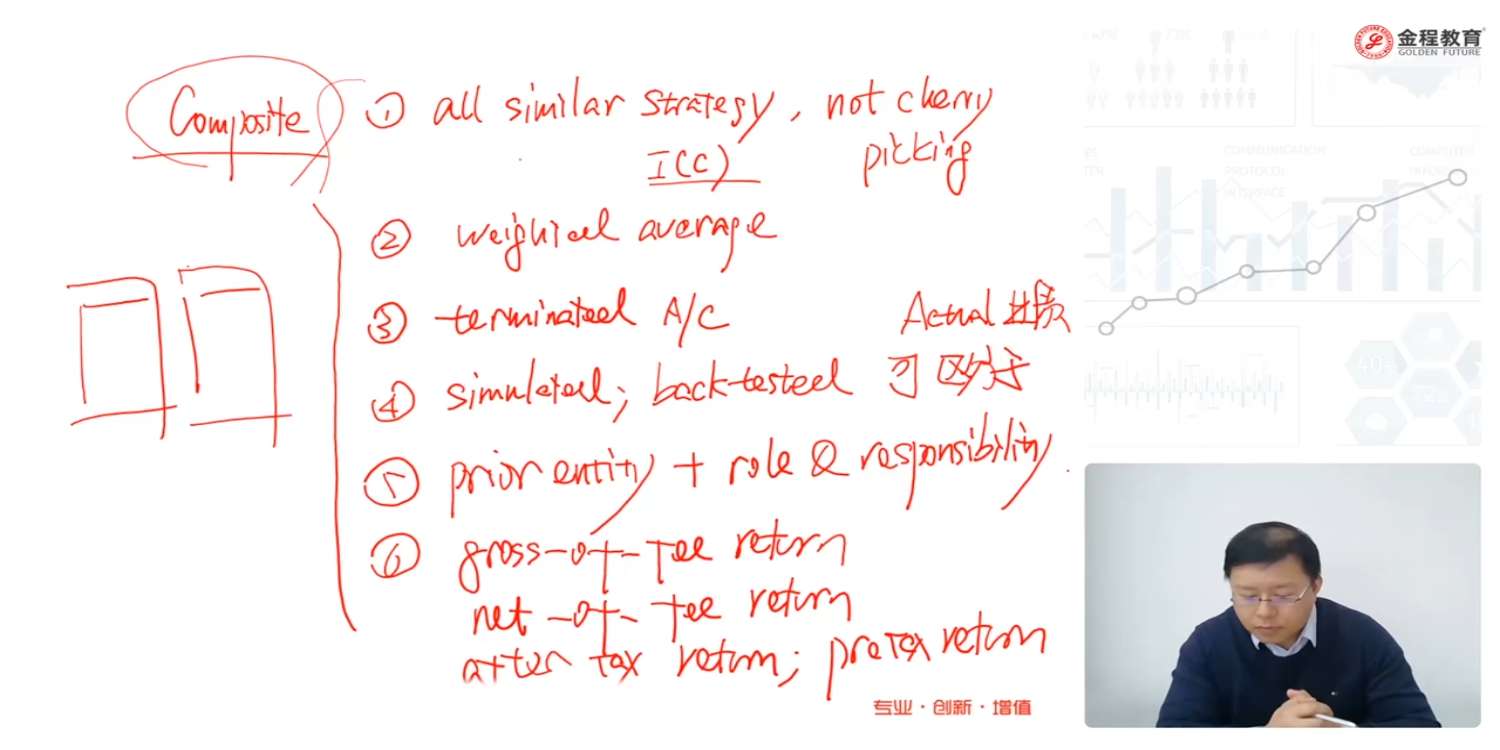 金程教育
GOLDEN FUTURE
Composite
① all similar strategy, not cherry
picking
I(C)
② weighted average
③ terminated A/C
Actual 业绩
④ simulated; back-tested 可区分于
⑤ prior entity + role & responsibility.
⑥ gross-of-fee return
net-of-fee return
after tax return; pretax return
COMMUNICATION
PROTOCOL
INTERFACE
专业·创新·增值